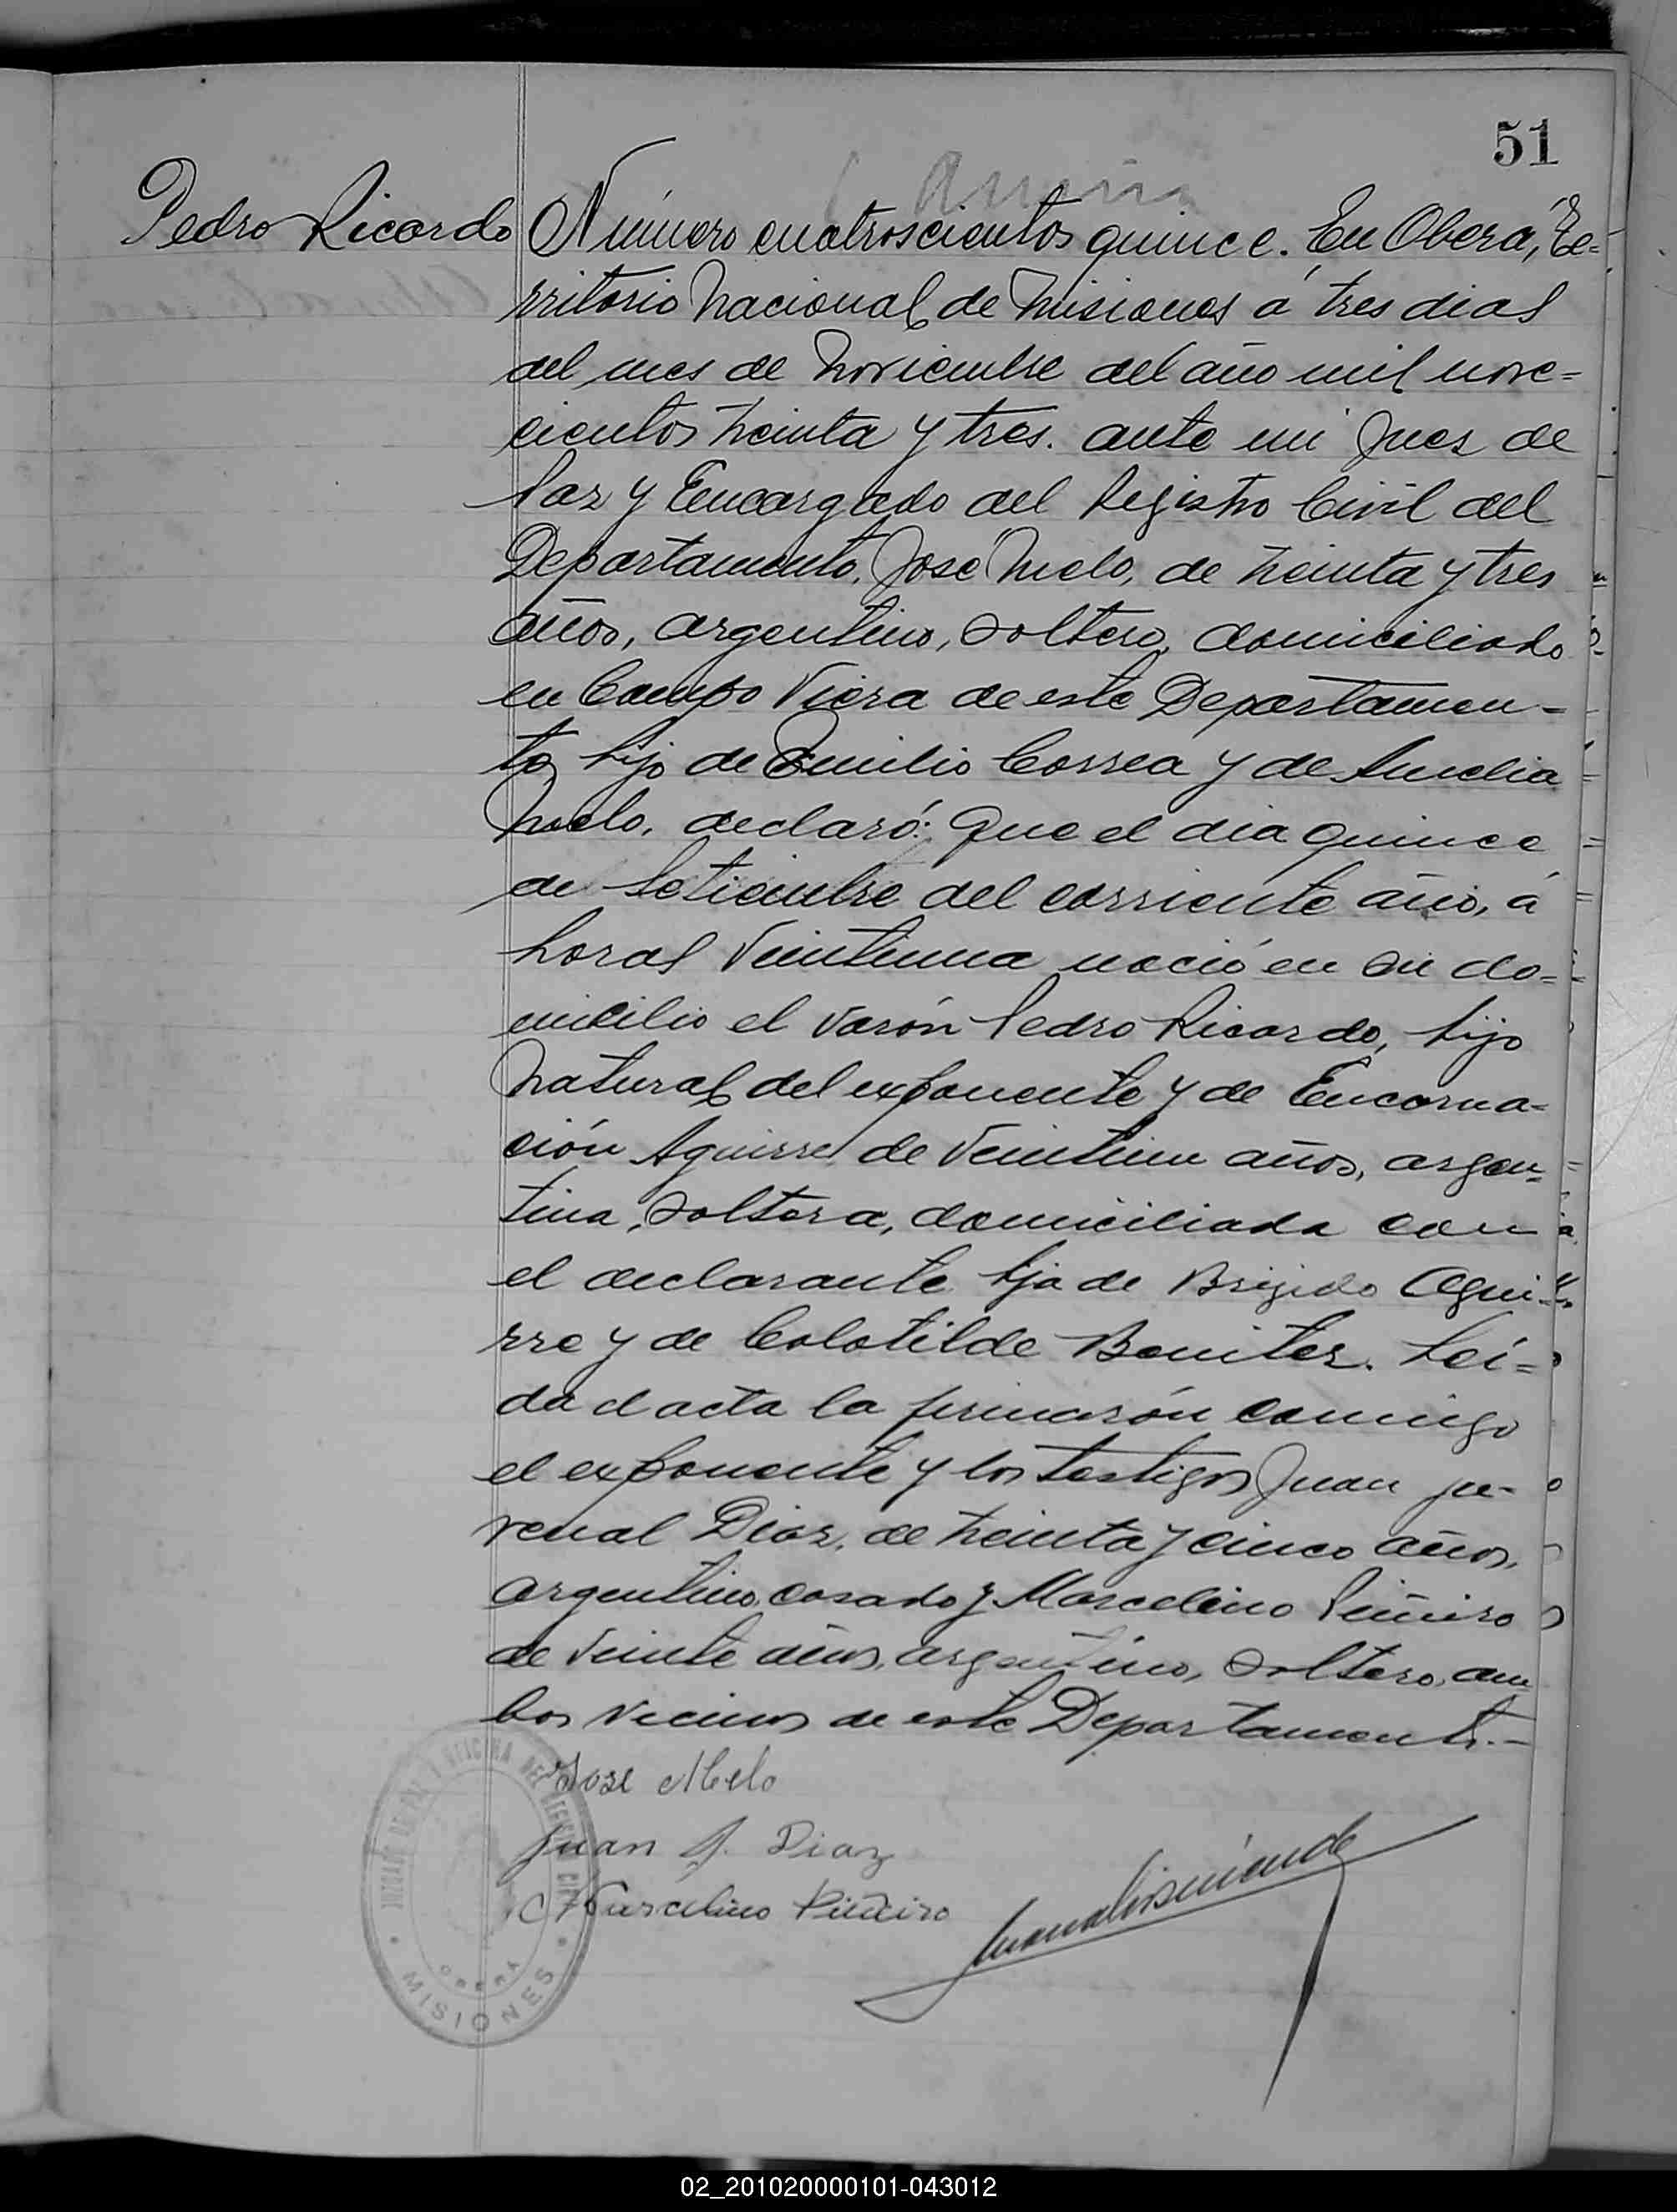 51
Pedro Ricardo
Número cuatroscientos quince. En Oberá, Te=
rritorio Nacional de Misiones á tres dias
del mes de Noviembre del año mil nove=
cientos treinta y tres. ante mi Juez de
Paz y Encargado del Registro Civil del
Departamento, José Melo, de treinta y tres
años, argentino, soltero, domiciliado
en Campo Viera de este Departamen=
to, hijo de Emilio Correa y de Amelia
Melo, declaró: Que el dia quince
de Setiembre del corriente año, á
horas veintiuna nació en su do=
micilio el varón Pedro Ricardo, hijo
natural del exponente y de Encarna=
ción Aguirre de veintiun años, argen=
tina, soltera, domiciliada con
el declarante hija de Brigido Agui=
rre y de Colotilde Benitez. Leí=
da el acta la firmarón conmigo
el exponente y los testigos Juan Ju-
venal Diaz, de treinta y cinco años,
argentino, casado y Marcelino Piñeiro
de veinte años, argentino, soltero, am
bos vecinos de este Departamento.-
José Melo
Juan J. Diaz
Marcelino Piñeiro
JUZGADO DE PAZ Y OFICINA DEL REGISTRO CIVIL
OBERÁ
MISIONES
02_201020000101-043012